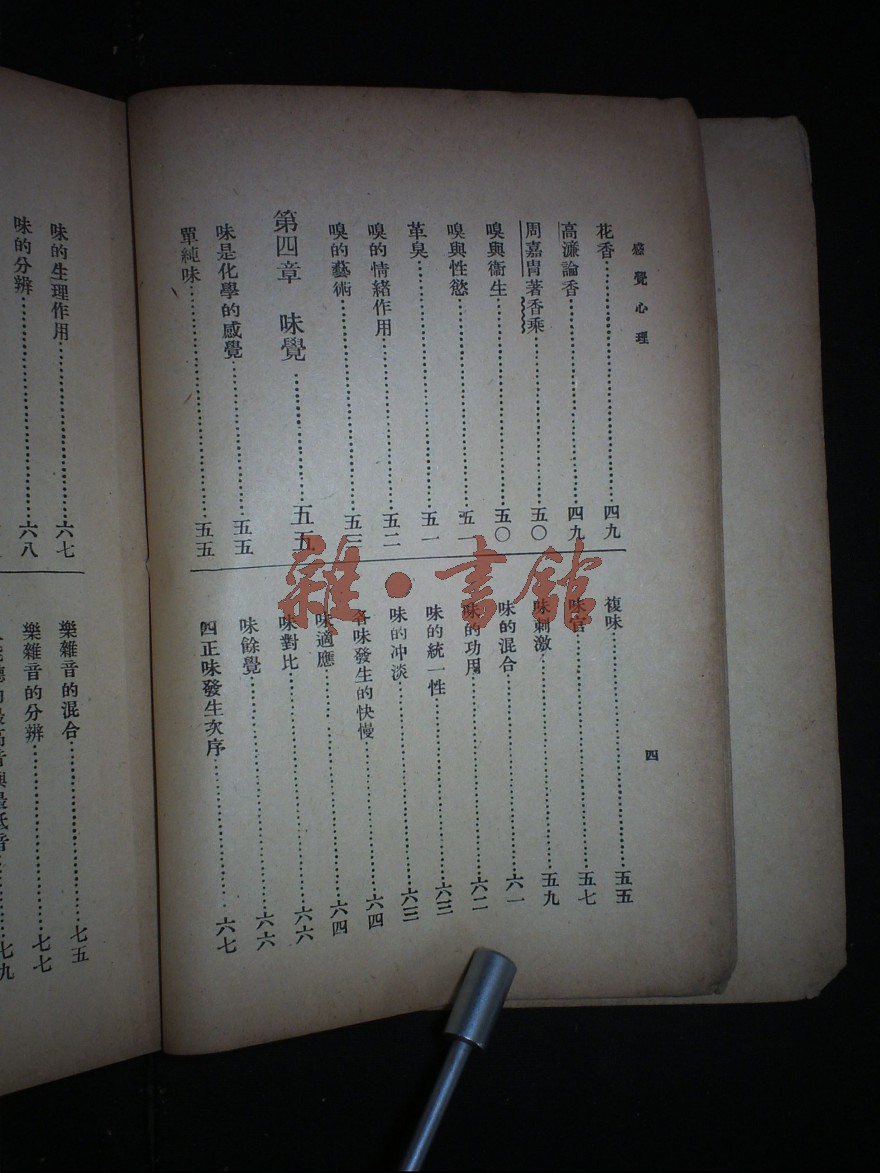 感覺心理
四
花香……四九
高濂論香……四九
周嘉胄著香乘……五〇
嗅與衞生……五〇
嗅與性慾……五一
革臭……五一
嗅的情緒作用……五二
嗅的藝術……五三
第四章 味覺……五五
味是化學的感覺……五五
單純味……五五
複味……五五
味官……五七
味刺激……五九
味的混合……六一
味的功用……六二
味的統一性……六三
味的冲淡……六三
各味發生的快慢……六四
味適應……六四
味對比……六六
味餘覺……六六
四正味發生次序……六七
味的生理作用……六七
味的分辨……六八
樂雜音的混合……七五
樂雜音的分辨……七七
高音與最低音……七九
雜·書館